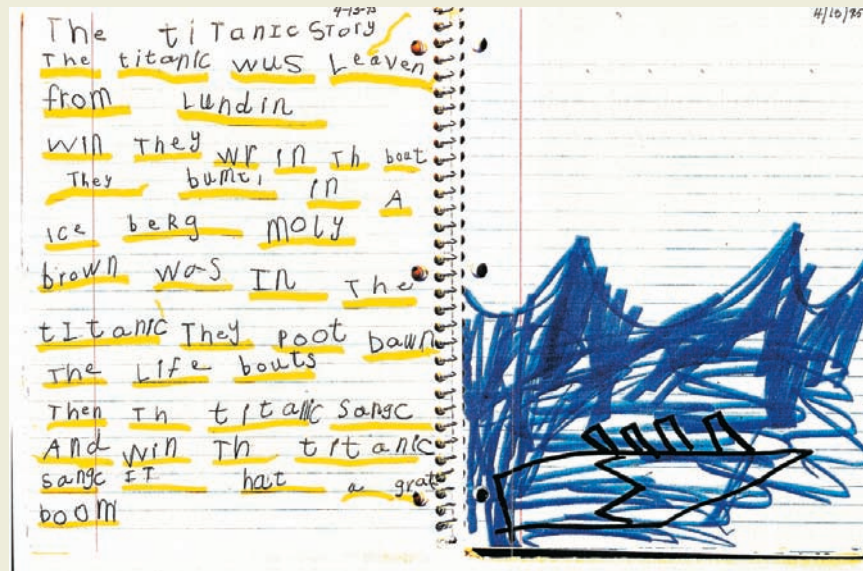 4/10/95
The tiTanic Story
The titanic wus Leaven
from Lundin
win They wr in Th bout
They bumti in A
ice beRg MOLY
brown was IN The
tItanic They poot bawn
The Life bouts
Then Th titanic sangc
And win Th titanic
sangc IT hat a grat
boom